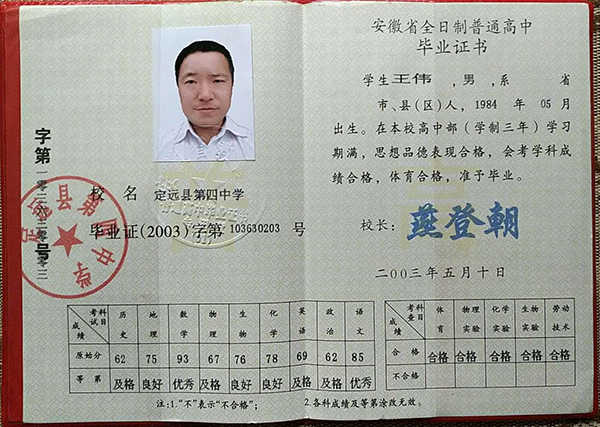 安徽省全日制普通高中
毕业证书
学生王伟,男,系 省
市、县(区)人,1984 年 05 月
出生。在本校高中部(学制三年)学习
期满,思想品德表现合格,会考学科成
绩合格,体育合格,准予毕业。
校长: 燕登朝
二〇〇三年五月十日
校 名 定远县第四中学
毕业证(2003)字第 103630203 号
字第
号
考试科目 成绩 历史 地理 数学 物理 生物 化学 英语 政治 语文
原始分 62 75 93 67 76 78 69 62 85
等 第 及格 良好 优秀 及格 良好 良好 及格 及格 优秀
考查科目 成绩 体育 物理实验 化学实验 生物实验 劳动技术
合 格 合格 合格 合格 合格 合格
不合格
注:1.“不”表示“不合格”; 2.各科成绩及等第涂改无效。